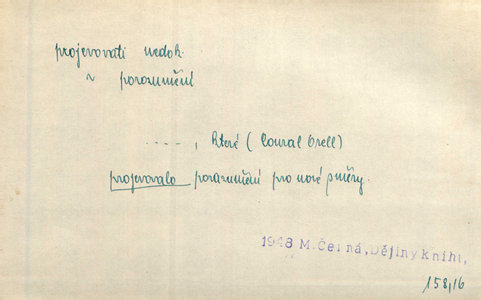 projevovati nedok.
~ porozumění
....., které (Conral Orell)
projevovalo porozumění pro nové směry.
1948 M. Černá, Dějiny kniht,
158,16